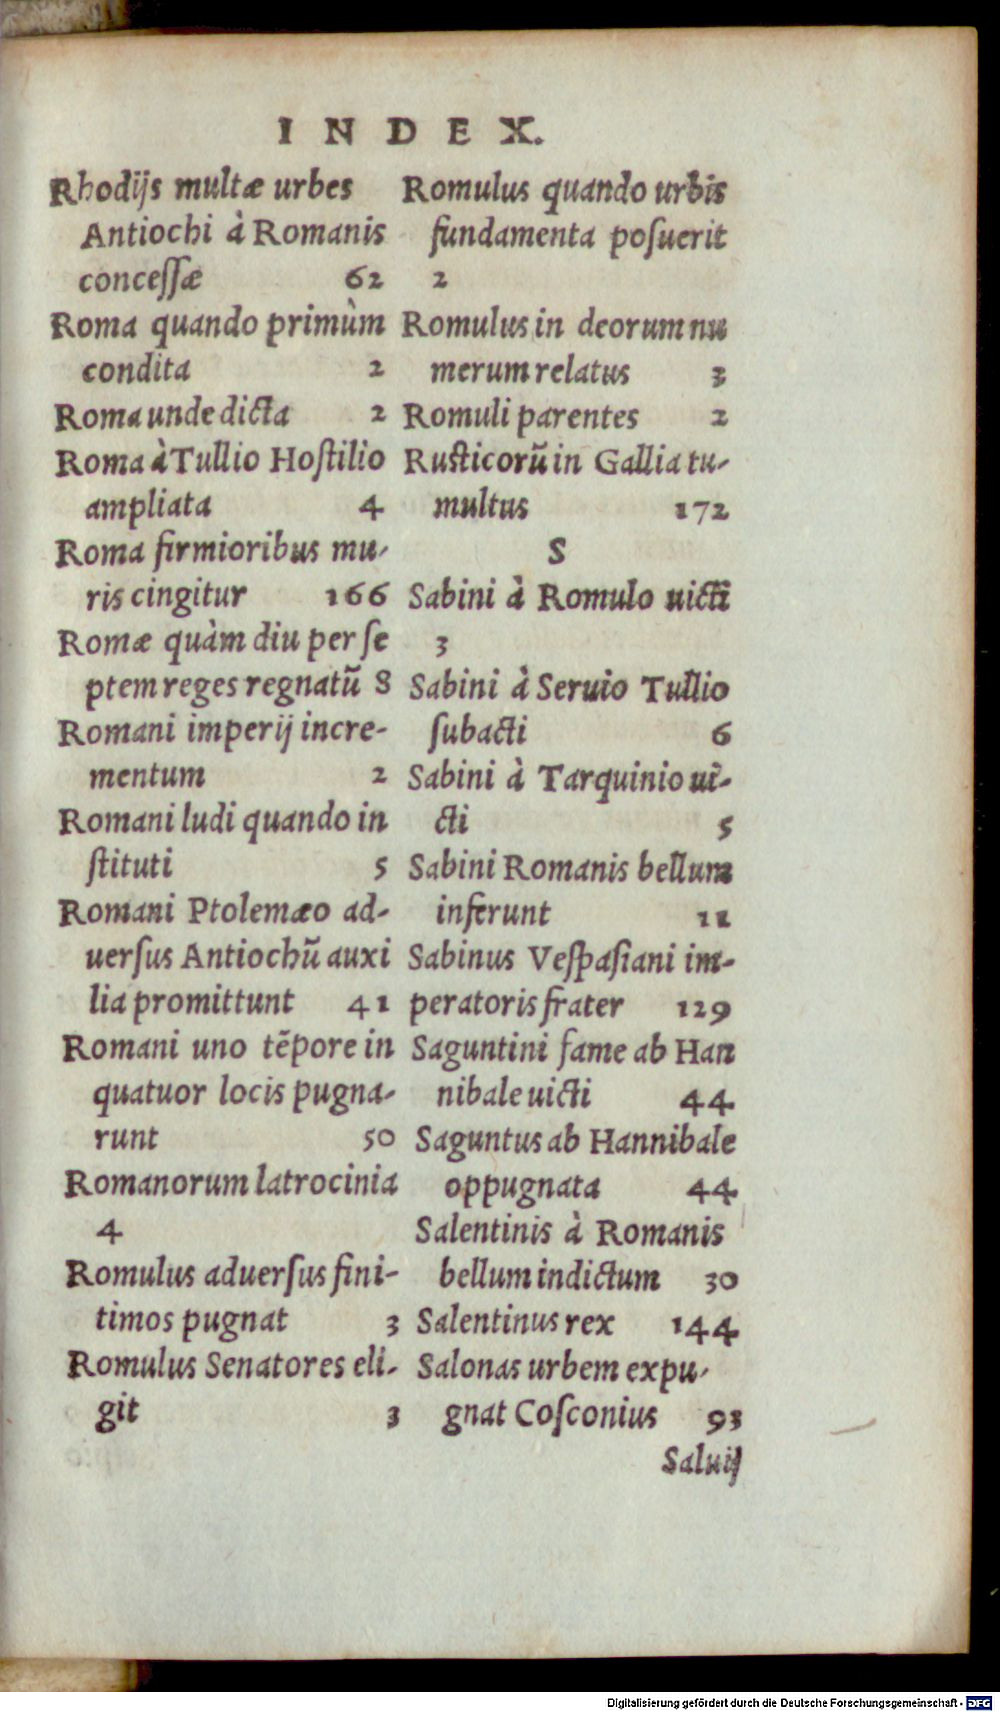 INDEX.
Rhodijs multæ urbes
Antiochi à Romanis
concessæ 62
Roma quando primùm
condita 2
Roma unde dicta 2
Roma à Tullio Hostilio
ampliata 4
Roma firmioribus mu-
ris cingitur 166
Romæ quàm diu per se
ptem reges regnatũ 8
Romani imperij incre-
mentum 2
Romani ludi quando in
stituti 5
Romani Ptolemæo ad-
uersus Antiochũ auxi
lia promittunt 41
Romani uno tẽpore in
quatuor locis pugna-
runt 50
Romanorum latrocinia
4
Romulus aduersus fini-
timos pugnat 3
Romulus Senatores eli-
git 3
Romulus quando urbis
fundamenta posuerit
2
Romulus in deorum nu
merum relatus 3
Romuli parentes 2
Rusticorũ in Gallia tu-
multus 172
S
Sabini à Romulo uicti
3
Sabini à Seruio Tullio
subacti 6
Sabini à Tarquinio ui-
cti 5
Sabini Romanis bellum
inferunt 11
Sabinus Vespasiani im-
peratoris frater 129
Saguntini fame ab Han
nibale uicti 44
Saguntus ab Hannibale
oppugnata 44
Salentinis à Romanis
bellum indictum 30
Salentinus rex 144
Salonas urbem expu-
gnat Cosconius 93
Saluij
Digitalisierung gefördert durch die Deutsche Forschungsgemeinschaft - DFG